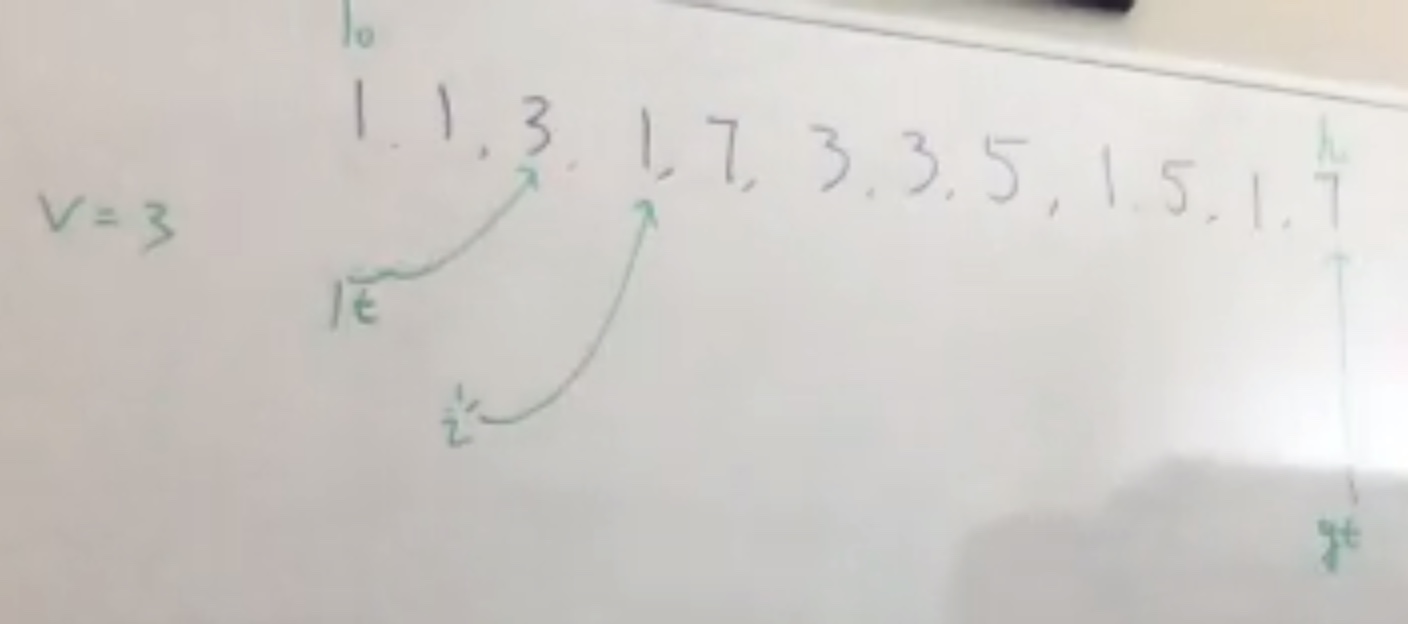 lo
1. 1, 3. 1, 7, 3. 3. 5, 1. 5. 1. 7
V = 3
lt
i
gt